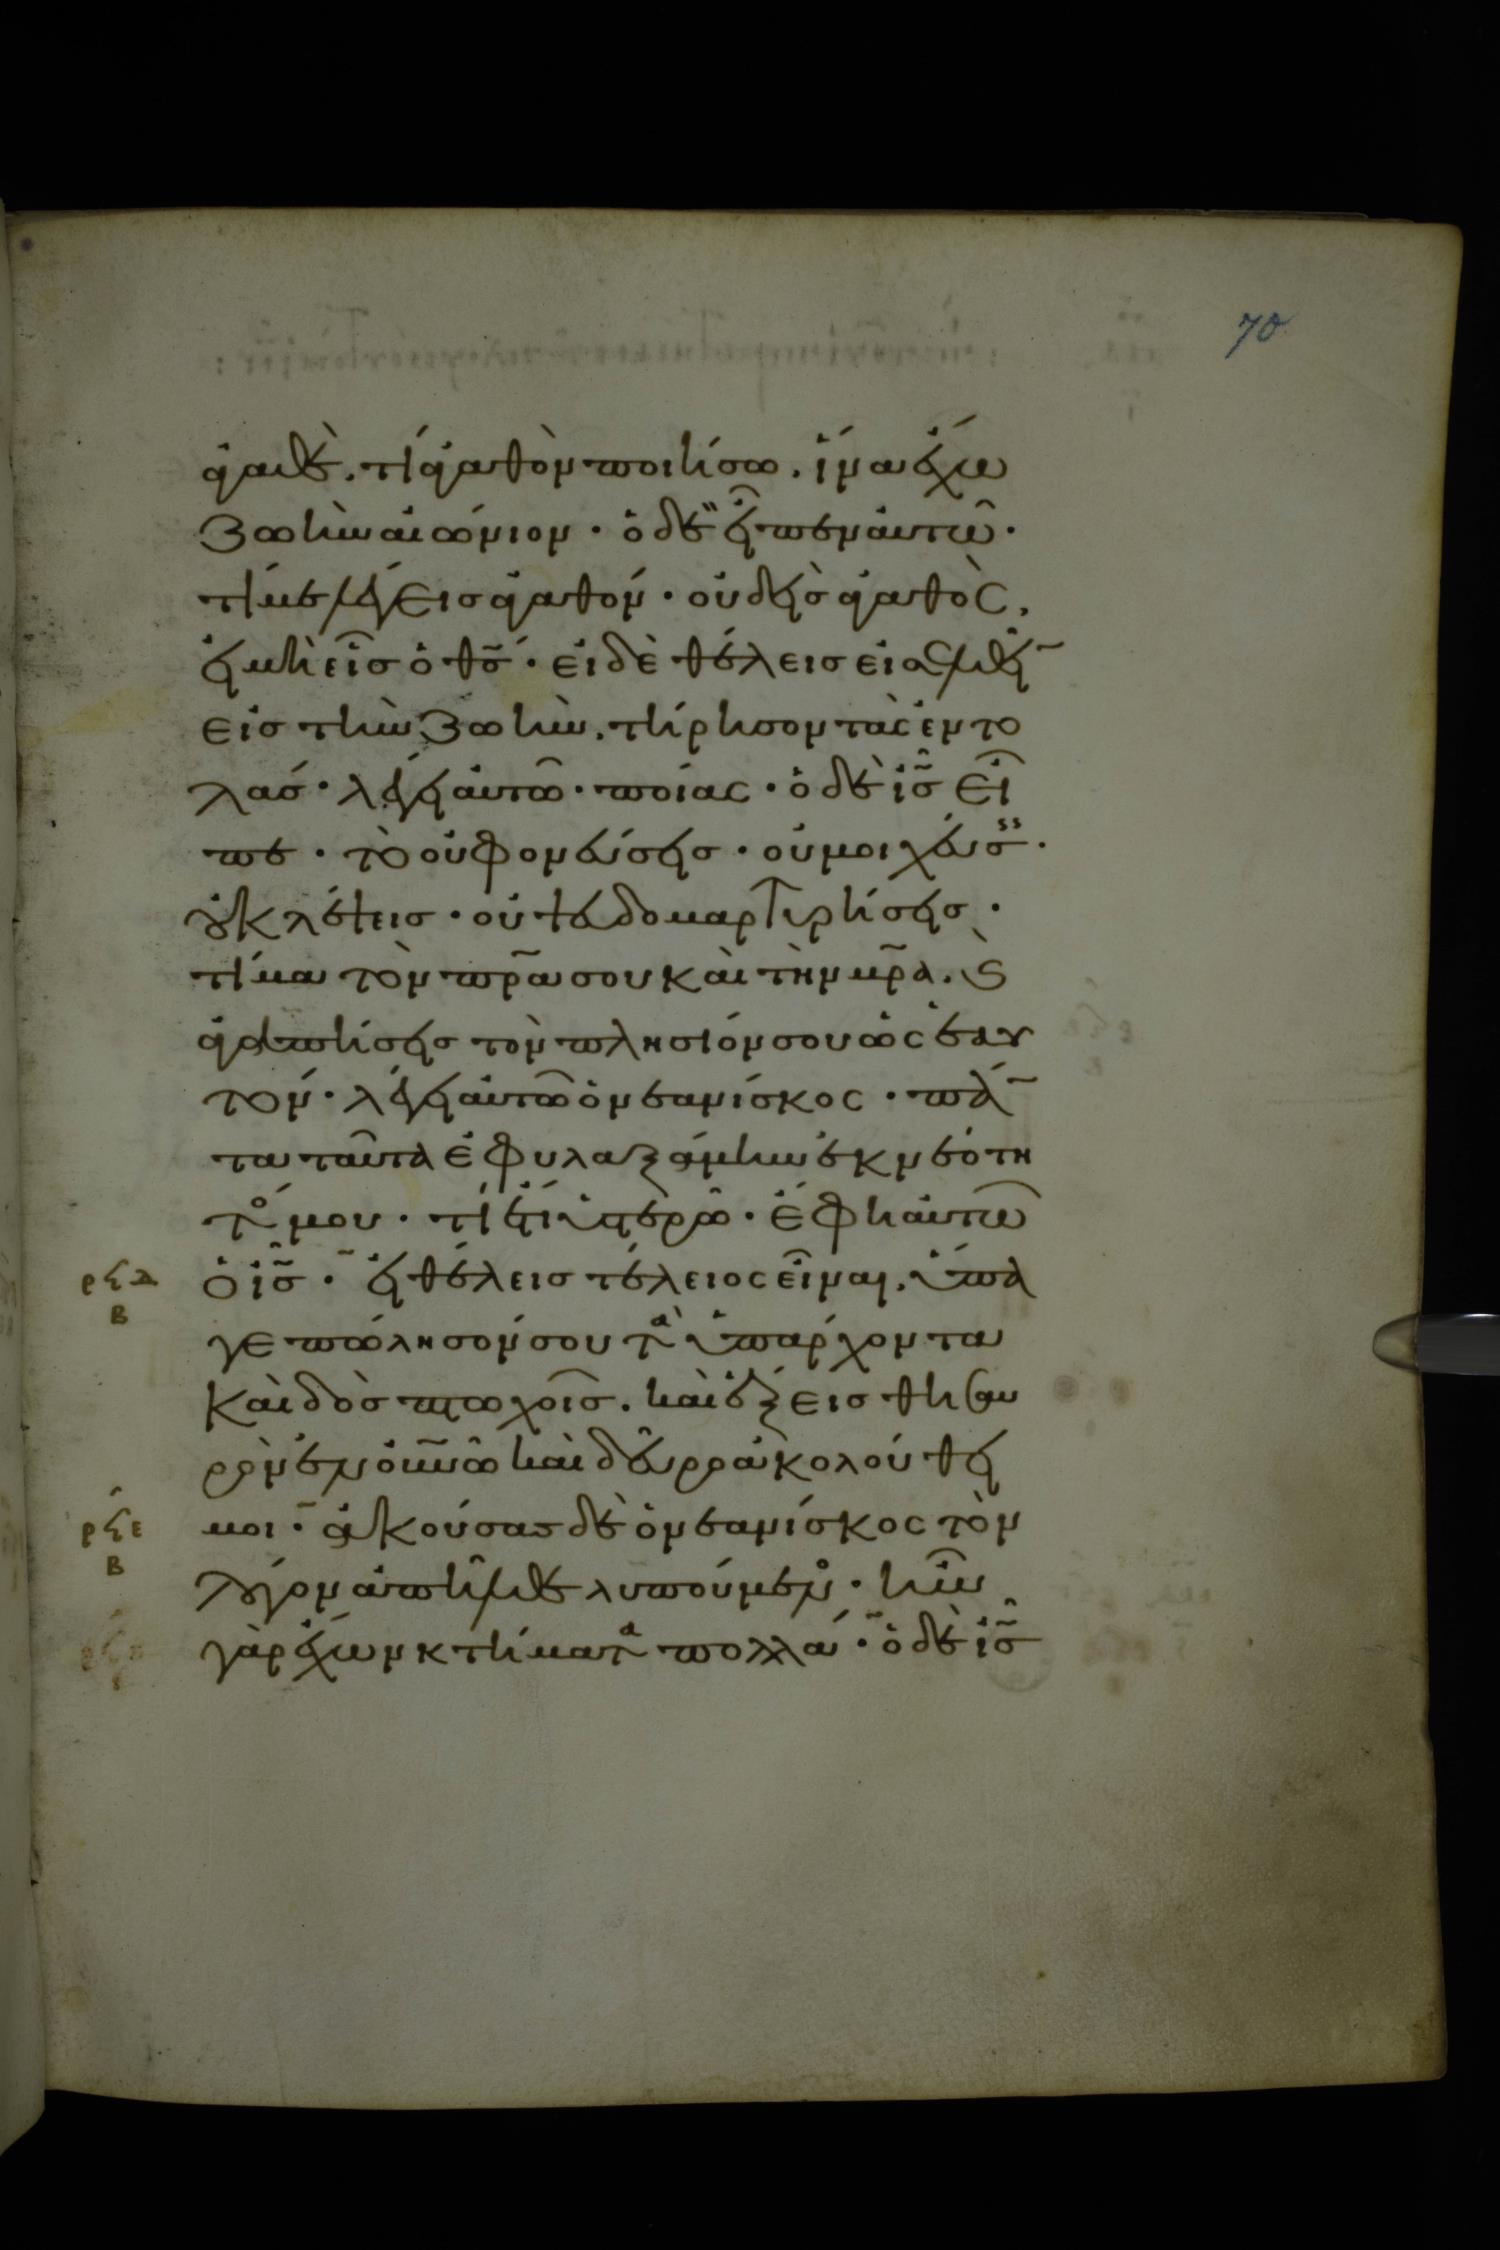 70
ἀγαθὲ. τί ἀγαθὸν ποιήσω. ἵνα ἔχω
ζωὴν αἰώνιον · ὁ δὲ εἶπεν αὐτῶ ·
τί με λέγεις ἀγαθόν · οὐδεὶσ ἀγαθὸς.
εἰ μὴ εἷσ ὁ θσ̄ · εἰ δὲ θέλεισ εἰσελθεῖ̄
εἰσ τὴν ζωὴν. τήρησον τὰς ἐντο
λάσ · λέγει αὐτῶ · ποίας · ὁ δὲ ἰσ̄ εἶ
πε · τὸ οὐ φονεύσεισ · οὐ μοιχεύσ ·
οὐ κλέψεισ · οὐ ψευδομαρτυρήσεισ ·
τίμα τὸν πρ̄α σου καὶ τὴν μρ̄α. ϗ
ἀγαπήσεισ τὸν πλησίον σου ὡς ἑαυ
τόν · λέγει αὐτῶ ὁ νεανίσκος · πά̄
τα ταῦτα ἐφυλαξάμην ἐκ νεότη
τός μου · τί ἔτι ὑστερῶ · ἔφη αὐτῶ
ρϟδ
β
ὁ ἰσ̄ · εἰ θέλεισ τέλειος εἶναι. ὕπα
γε πώλησόν σου τὰ ὑπάρχοντα
καὶ δὸσ πτωχοῖσ. καὶ ἕξεισ θησαυ
ρὸν ἐν οὐν̄ῶ καὶ δεῦρο ἀκολούθει
ρϟε
β
μοι · ἀκούσασ δὲ ὁ νεανίσκος τὸν
λόγον ἀπῆλθε λυπούμενος · ἦν
γὰρ ἔχων κτήματα πολλά · ὁ δὲ ἰσ̄